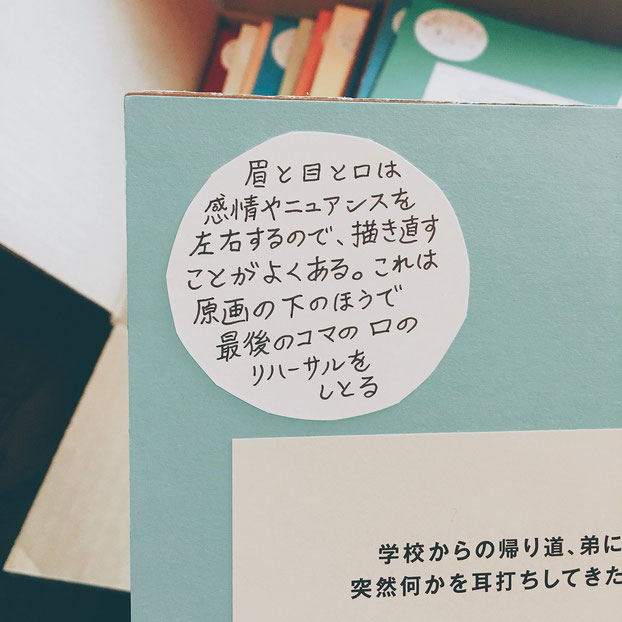 眉と目と口は
感情やニュアンスを
左右するので、描き直す
ことがよくある。これは
原画の下のほうで
最後のコマの口の
リハーサルを
しとる
学校からの帰り道、弟に
突然何かを耳打ちしてきた